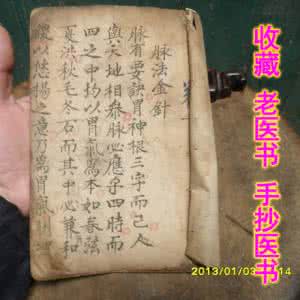 收藏 老医书 手抄医书
脉法金針
脉有要訣胃神根三字而已人
與天地相叅脉必應乎四時而
四之中均以胃氣爲本如春弦
夏洪秋毛冬石而其中必兼和
緩以悠揚之意乃爲胃氣
2013/01/03 14